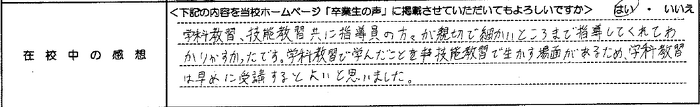 <下記の内容を当校ホームページ「卒業生の声」に掲載させていただいてもよろしいですか> はい ・ いいえ
在校中の感想
学科教習、技能教習共に指導員の方々が親切で細かいところまで指導してくれてわ
かりやすかったです。学科教習で学んだことを技能教習で生かす場面があるため、学科教習
は早めに受講するとよいと思いました。